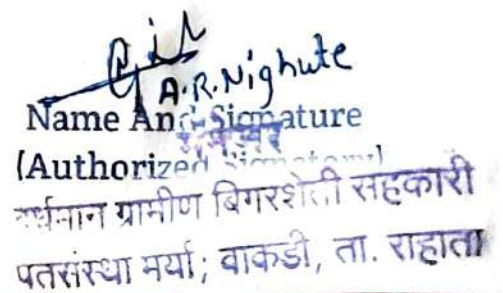 A.R.Nighute
Name And Signature
मॅनेजर
(Authorized Signatory)
वर्धमान ग्रामीण बिगरशेती सहकारी
पतसंस्था मर्या; वाकडी, ता. राहाता